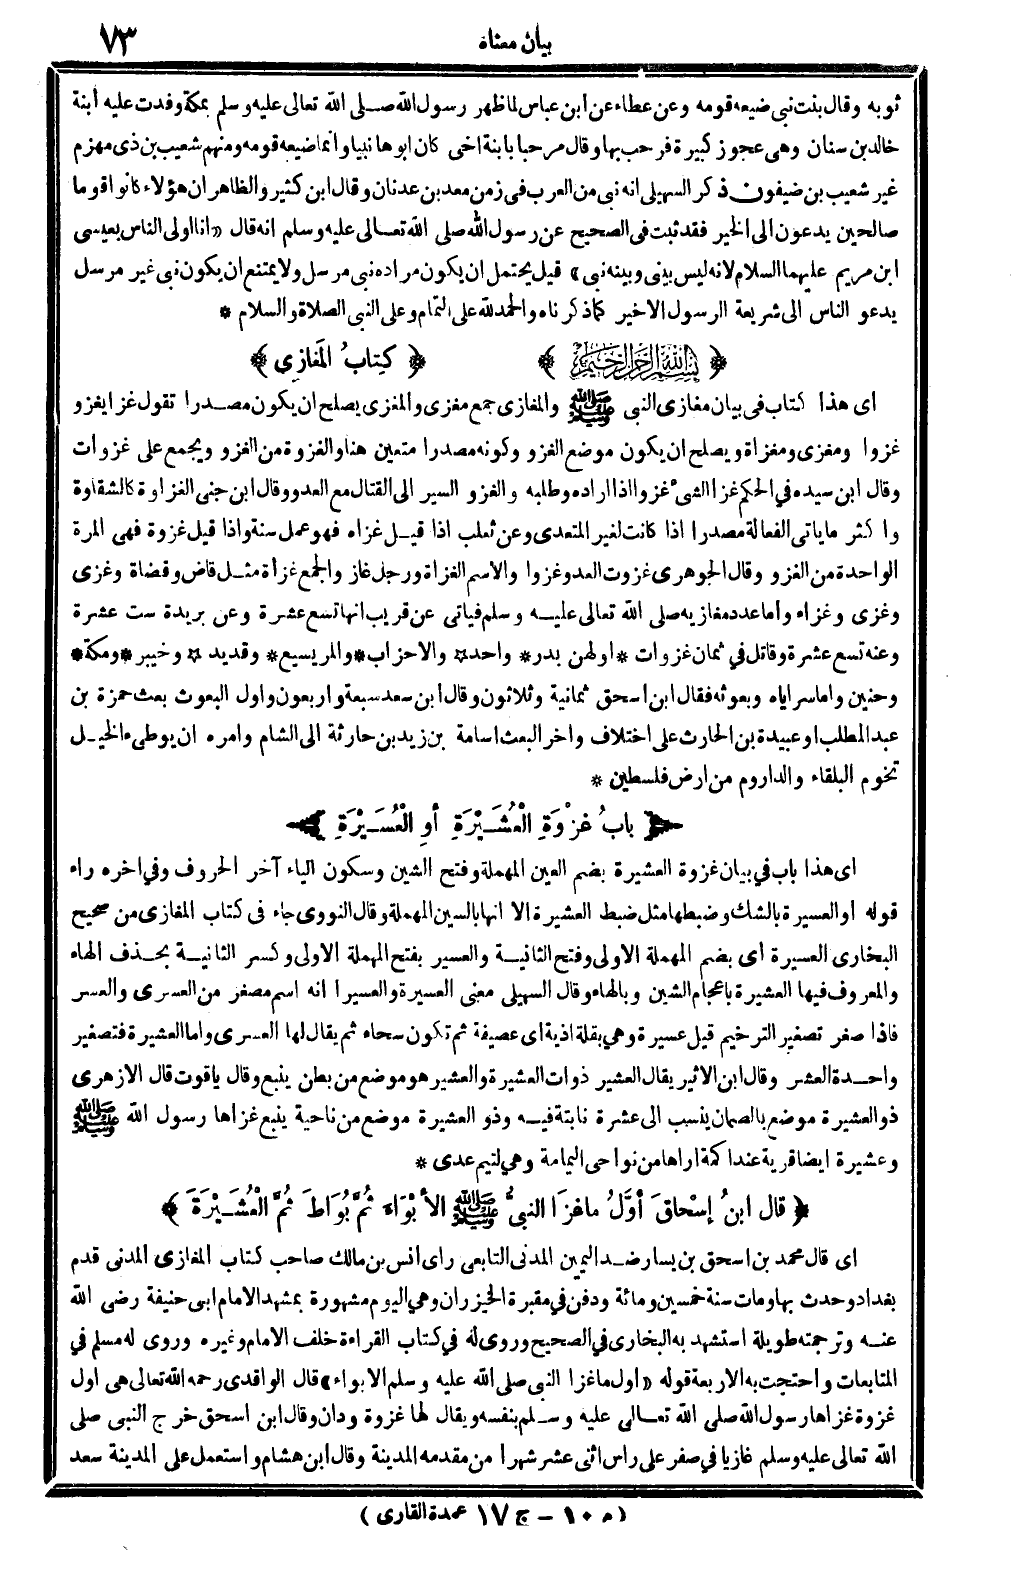 بيان معناه ٧٣
ثوبه وقال بنت نبي ضيعه قومه وعن عطاء عن ابن عباس لما ظهر رسول الله صلى الله تعالى عليه وسلم بمكة وفدت عليه ابنة
خالد بن سنان وهي عجوز كبيرة فرحب بها وقال مرحبا بابنة اخى كان ابوها نبيا وانما ضيعه قومه ومنهم شعيب بن ذى مهزم
غير شعيب بن ضيفون ذكر السهيلي انه نبي من العرب فى زمن معد بن عدنان وقال ابن كثير والظاهر ان هؤلاء كانوا قوما
صالحين يدعون الى الخير فقد ثبت فى الصحيح عن رسول الله صلى الله تعالى عليه وسلم انه قال «انا اولى الناس بعيسى
ابن مريم عليهما السلام لانه ليس بينى وبينه نبي» قيل يحتمل ان يكون مراده نبي مرسل ولا يمتنع ان يكون نبي غير مرسل
يدعو الناس الى شريعة الرسول الاخير كما ذكرناه والحمد لله على التمام وعلى النبي الصلاة والسلام *
﴿ بسم الله الرحمن الرحيم ﴾ ﴿ كِتابُ المَغازِي ﴾
اى هذا كتاب فى بيان مغازى النبى ﷺ والمغازى جمع مغزى والمغزى يصلح ان يكون مصدرا تقول غزا يغزو
غزوا ومغزى ومغزاة ويصلح ان يكون موضع الغزو وكونه مصدرا متعين هنا والغزوة من الغزو ويجمع على غزوات
وقال ابن سيده في الحكم غزا الشىء غزوا اذا اراده وطلبه والغزو السير الى القتال مع العدو وقال ابن جنى الغزاوة كالشقاوة
واكثر ماياتى الفعالة مصدرا اذا كانت لغير المتعدى وعن ثعلب اذا قيل غزاه فهو عمل سنة واذا قيل غزوة فهى المرة
الواحدة من الغزو وقال الجوهرى غزوت العدو غزوا والاسم الغزاة ورجل غاز والجمع غزأة مثل قاض وقضاة وغزى
وغزى وغزاء وأما عدد مغازيه صلى الله تعالى عليه وسلم فياتى عن قريب انها تسع عشرة وعن بريدة ست عشرة
وعنه تسع عشرة وقاتل في ثمان غزوات *اولهن بدر* واحد* والاحزاب*والمريسيع* وقديد * وخيبر*ومكة*
وحنين واما سراياه وبعوثه فقال ابن اسحق ثمانية وثلاثون وقال ابن سعد سبعة واربعون واول البعوث بعث حمزة بن
عبد المطلب او عبيدة بن الحارث على اختلاف واخر البعث اسامة بن زيد بن حارثة الى الشام وامره ان يوطىء الخيل
تخوم البلقاء والداروم من ارض فلسطين *
﴿ بابُ غزْوَةِ الْعُشَيْرَةِ أوِ الْعُسَيْرَةِ ﴾
اى هذا باب في بيان غزوة العشيرة بضم العين المهملة وفتح الشين وسكون الياء آخر الحروف وفي اخره راء
قوله او العسيرة بالشك وضبطها مثل ضبط العشيرة الا انها بالسين المهملة وقال النووى جاء فى كتاب المغازى من صحيح
البخارى العسيرة أى بضم المهملة الاولى وفتح الثانية والعسير بفتح المهملة الاولى وكسر الثانية بحذف الهاء
والمعروف فيها العشيرة باعجام الشين وبالهاء وقال السهيلي معنى العسيرة والعسيرا انه اسم مصغر من العسرى والعسر
فاذا صغر تصغير الترخيم قيل عسيرة وهي بقلة اذية اى عصيفة ثم تكون سحاء ثم يقال لها العسرى واما العشيرة فتصغير
واحدة العشر وقال ابن الاثير يقال العشير ذوات العشيرة والعشير هو موضع من بطن ينبع وقال ياقوت قال الازهرى
ذو العشيرة موضع بالصمان ينسب الى عشرة نابتة فيه وذو العشيرة موضع من ناحية ينبع غزاها رسول الله ﷺ
وعشيرة ايضا قرية عند اكمة اراها من نواحى اليمامة وهي لتيم عدى *
﴿ قال ابنُ إسْحاقَ أوَّلُ ماغزَا النبىُّ ﷺ الأبْوَاءَ ثُمَّ بُوَاطَ ثُمَّ الْعُشَيْرَةَ ﴾
اى قال محمد بن اسحق بن يسار ضد اليمين المدنى التابعى راى انس بن مالك صاحب كتاب المغازى المدنى قدم
بغداد وحدث بها ومات سنة خمسين ومائة ودفن في مقبرة الخيزران وهي اليوم مشهورة بمشهد الامام ابى حنيفة رضى الله
عنه وترجمته طويلة استشهد به البخارى في الصحيح وروى له في كتاب القراءة خلف الامام وغيره وروى له مسلم في
المتابعات واحتجت به الاربعة قوله «اول ماغزا النبى صلى الله عليه وسلم الابواء» قال الواقدى رحمه الله تعالى هى اول
غزوة غزاها رسول الله صلى الله تعالى عليه وسلم بنفسه ويقال لها غزوة ودان وقال ابن اسحق خرج النبى صلى
الله تعالى عليه وسلم غازيا في صفر على راس اثنى عشر شهرا من مقدمه المدينة وقال ابن هشام واستعمل على المدينة سعد
(م ١٠ - ج ١٧ عمدة القارى)